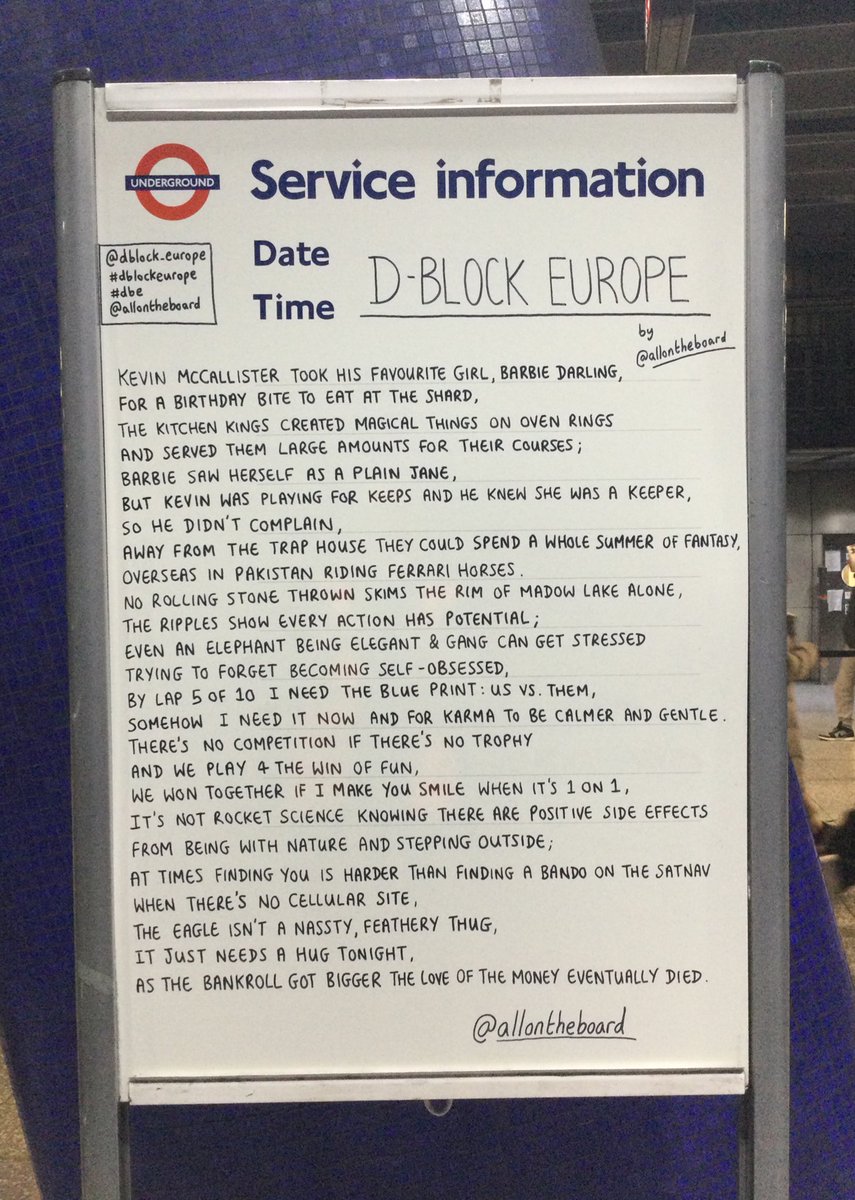 UNDERGROUND
Service information
@dblock_europe
#dblockeurope
#dbe
@allontheboard
Date
Time
D-BLOCK EUROPE
by
@allontheboard
KEVIN MCCALLISTER TOOK HIS FAVOURITE GIRL, BARBIE DARLING,
FOR A BIRTHDAY BITE TO EAT AT THE SHARD,
THE KITCHEN KINGS CREATED MAGICAL THINGS ON OVEN RINGS
AND SERVED THEM LARGE AMOUNTS FOR THEIR COURSES;
BARBIE SAW HERSELF AS A PLAIN JANE,
BUT KEVIN WAS PLAYING FOR KEEPS AND HE KNEW SHE WAS A KEEPER,
SO HE DIDN'T COMPLAIN,
AWAY FROM THE TRAP HOUSE THEY COULD SPEND A WHOLE SUMMER OF FANTASY,
OVERSEAS IN PAKISTAN RIDING FERRARI HORSES.
NO ROLLING STONE THROWN SKIMS THE RIM OF MADOW LAKE ALONE,
THE RIPPLES SHOW EVERY ACTION HAS POTENTIAL;
EVEN AN ELEPHANT BEING ELEGANT & GANG CAN GET STRESSED
TRYING TO FORGET BECOMING SELF-OBSESSED,
BY LAP 5 OF 10 I NEED THE BLUE PRINT: US VS. THEM,
SOMEHOW I NEED IT NOW AND FOR KARMA TO BE CALMER AND GENTLE.
THERE'S NO COMPETITION IF THERE'S NO TROPHY
AND WE PLAY 4 THE WIN OF FUN,
WE WON TOGETHER IF I MAKE YOU SMILE WHEN IT'S 1 ON 1,
IT'S NOT ROCKET SCIENCE KNOWING THERE ARE POSITIVE SIDE EFFECTS
FROM BEING WITH NATURE AND STEPPING OUTSIDE;
AT TIMES FINDING YOU IS HARDER THAN FINDING A BANDO ON THE SATNAV
WHEN THERE'S NO CELLULAR SITE,
THE EAGLE ISN'T A NASSTY, FEATHERY THUG,
IT JUST NEEDS A HUG TONIGHT,
AS THE BANKROLL GOT BIGGER THE LOVE OF THE MONEY EVENTUALLY DIED.
@allontheboard